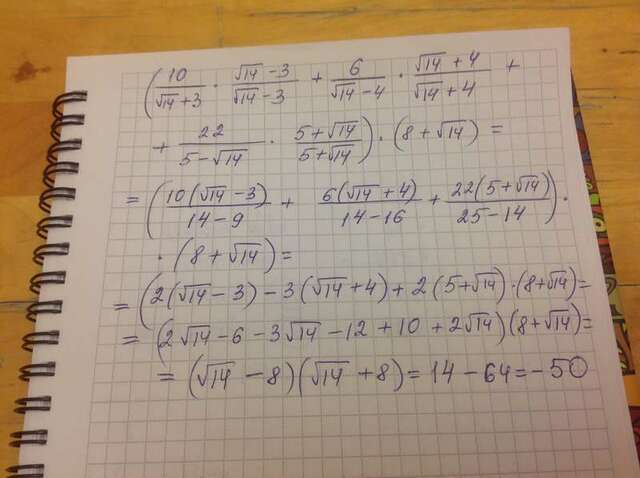 (10/(√14+3) · (√14-3)/(√14-3) + 6/(√14-4) · (√14+4)/(√14+4) +
+ 22/(5-√14) · (5+√14)/(5+√14)) · (8+√14) =
= (10(√14-3)/(14-9) + 6(√14+4)/(14-16) + 22(5+√14)/(25-14)) ·
· (8+√14) =
= (2(√14-3) - 3(√14+4) + 2(5+√14) · (8+√14) =
= (2√14-6-3√14-12+10+2√14)(8+√14) =
= (√14-8)(√14+8) = 14-64 = -50